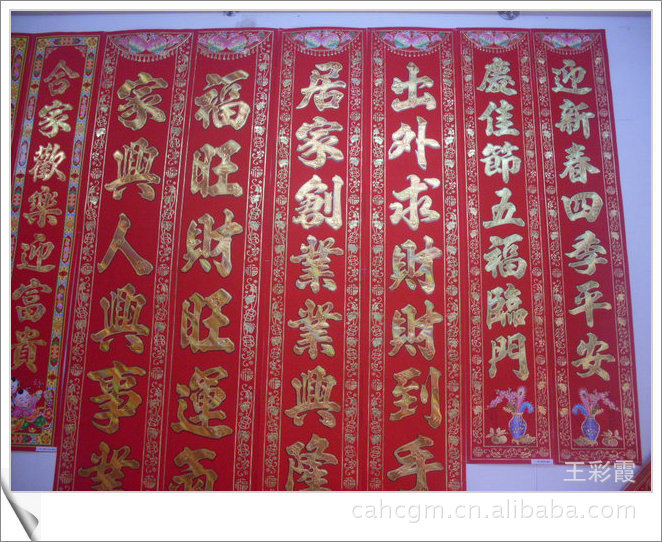 迎新春四季平安
慶佳節五福臨門
出外求財財到手
居家創業業興隆
福旺財旺運
家興人興事業
合家歡樂迎富貴
王彩霞
cahcgm.cn.alibaba.com